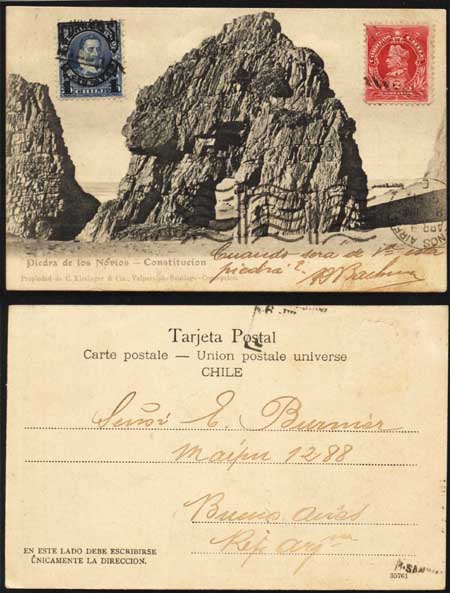 CORREOS CHILE
Piedra de los Novios — Constitucion
Propiedad de C. Kirsinger & Cia., Valparaiso-Santiago-Concepcion.
Cuando será de Vd esta
piedra?
Tarjeta Postal
Carte postale — Union postale universe
CHILE
Señor E. Burnier
Maipu 1288
Buenos Aires
Rep Arg
EN ESTE LADO DEBE ESCRIBIRSE
ÚNICAMENTE LA DIRECCION.
35761